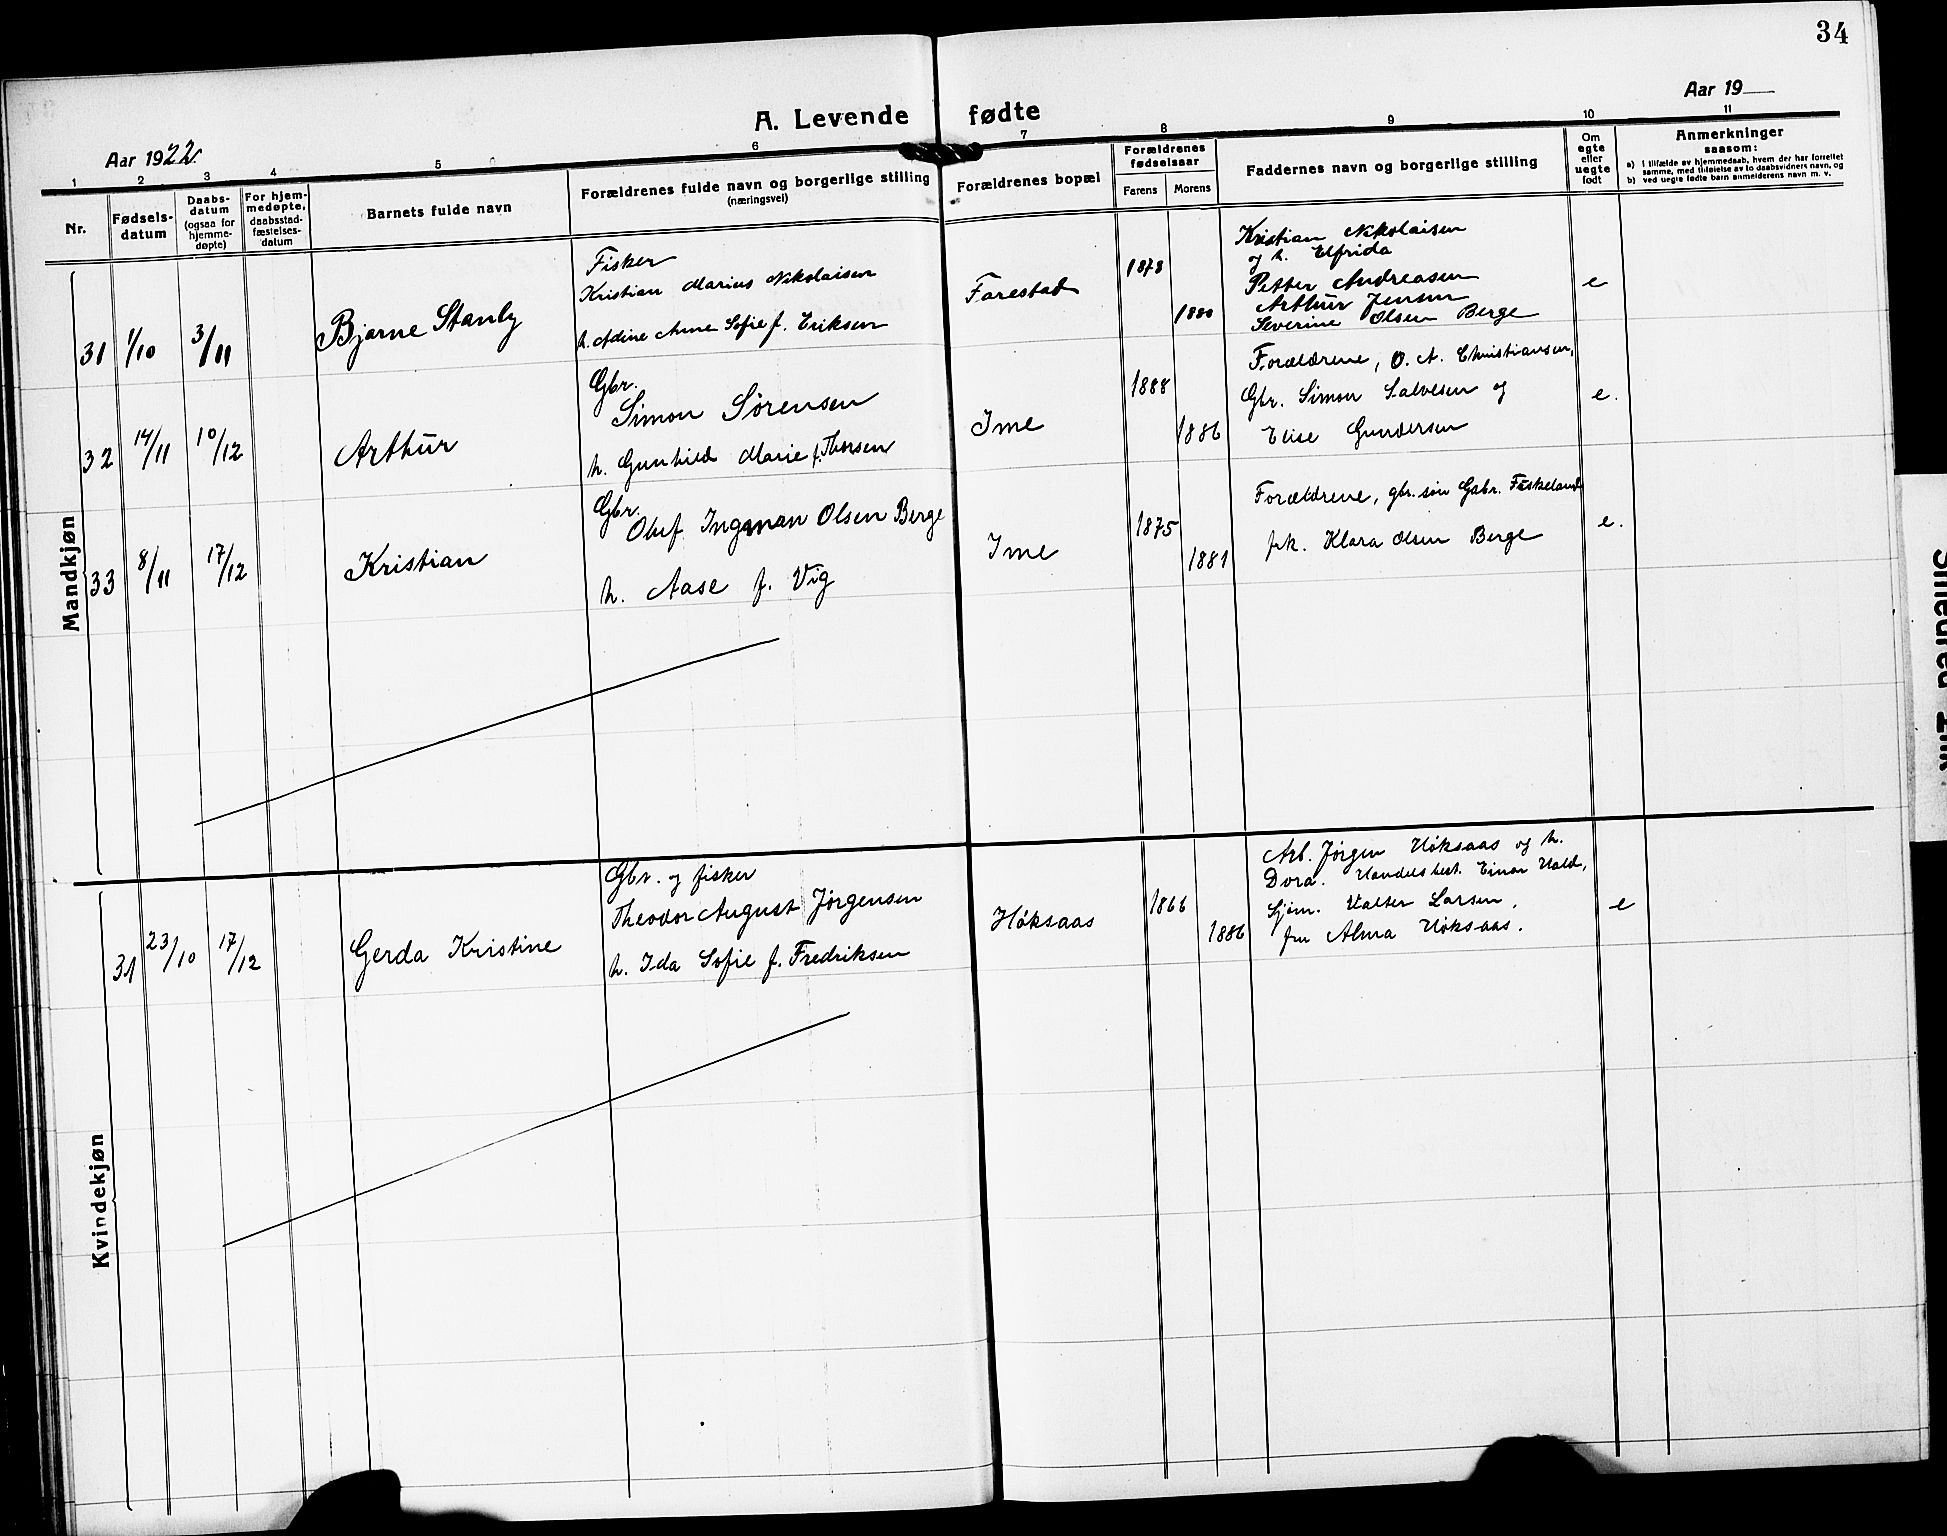 34
A. Levende fødte
Aar 1922.
Aar 19
1 2 3 4 5 6 7 8 9 10 11
Nr.
Fødsels-
datum
Daabs-
datum
(ogsaa for
hjemme-
døpte)
For hjem-
medøpte,
daabsstad-
fæstelses-
datum
Barnets fulde navn
Forældrenes fulde navn og borgerlige stilling
(næringsvei)
Forældrenes bopæl
Forældrenes
fødselsaar
Farens Morens
Faddernes navn og borgerlige stilling
Om
egte
eller
uegte
født
Anmerkninger
saasom:
a) i tilfælde av hjemmedaab, hvem der har forrettet
samme, med tilføielse av to daabsvidners navn, og
b) ved uegte fødte barn anmelderens navn m. v.
Mandkjøn
31 1/10 3/11
Bjarne Stanly
Fisker
Kristian Marius Nikolaisen
h. Adine Anne Sofie f. Eriksen
Farestad
1878
1880
Kristian Nikolaisen
og h. Elfrida
Petter Andreasen
Arthur Jensen
Severine Olsen Berge
e
32 14/11 10/12
Arthur
Gbr.
Simon Sørensen
h. Gunhild Marie f. Thorsen
Ime
1888
1886
Forældrene, O. A. Christiansen,
Gbr. Simon Salvesen og
Elise Gundersen
e.
33 8/11 17/12
Kristian
Gbr.
Oluf Ingman Olsen Berge
h. Aase f. Vig
Ime
1875
1881
Forældrene, gbr. søn Gabr. Fiskeland
frk. Klara Olsen Berge
e.
Kvindekjøn
31 23/10 17/12
Gerda Kristine
Gbr. og fisker
Theodor August Jørgensen
h. Ida Sofie f. Fredriksen
Høksaas
1866
1886
Arb. Jørgen Høksaas og h.
Dora. Handelsbest. Einar Hald,
Sjøm. Valter Larsen,
fru Alma Høksaas.
e